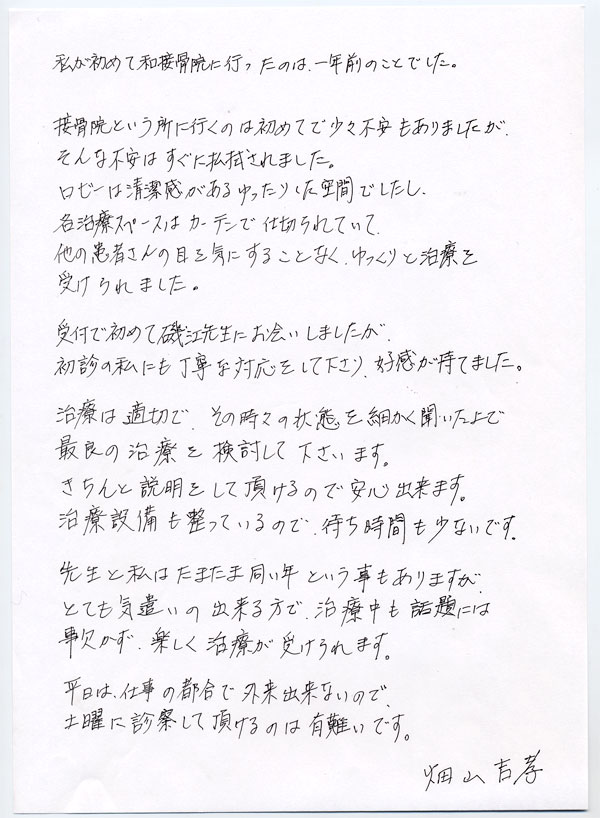 私が初めて和接骨院に行ったのは、一年前のことでした。
接骨院という所に行くのは初めてで少々不安もありましたが、
そんな不安はすぐに払拭されました。
ロビーは清潔感があるゆったりした空間でしたし、
各治療スペースはカーテンで仕切られていて、
他の患者さんの目を気にすることなく、ゆっくりと治療を
受けられました。
受付で初めて磯江先生にお会いしましたが、
初診の私にも丁寧な対応をして下さり、好感が持てました。
治療は適切で、その時々の状態を細かく聞いた上で
最良の治療を検討して下さいます。
きちんと説明をして頂けるので安心出来ます。
治療設備も整っているので、待ち時間も少ないです。
先生と私はたまたま同い年という事もありますが、
とても気遣いの出来る方で、治療中も話題には
事欠かず、楽しく治療が受けられます。
平日は、仕事の都合で外来出来ないので、
土曜に診察して頂けるのは有難いです。
畑山吉孝